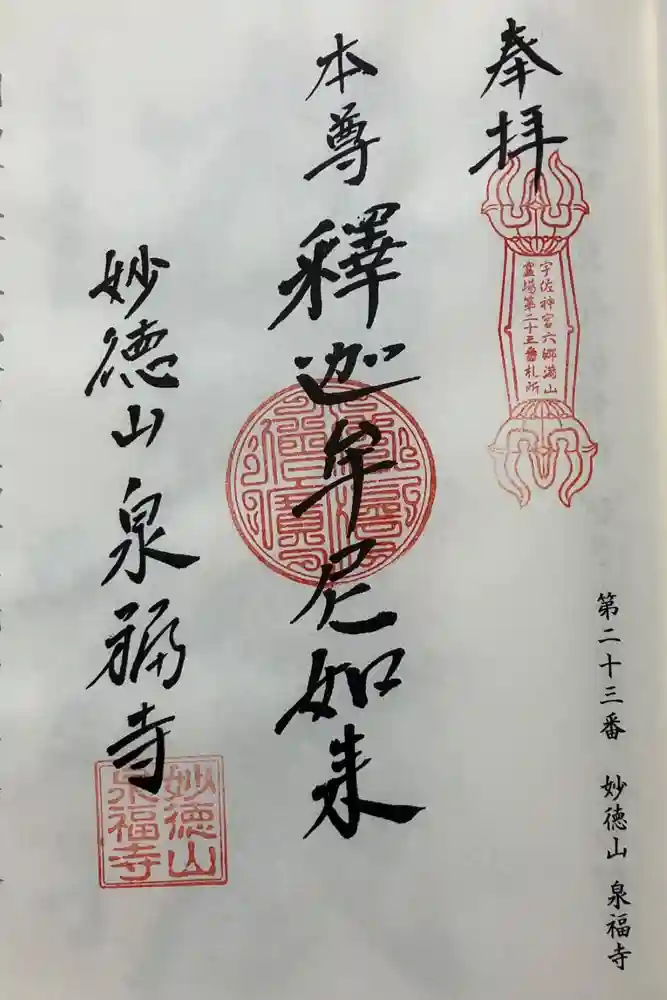 奉拝
宇佐神宮六郷満山
霊場第二十三番札所
本尊 釋迦牟尼如来
妙徳山 泉福寺
妙徳山
泉福寺
第二十三番 妙徳山 泉福寺